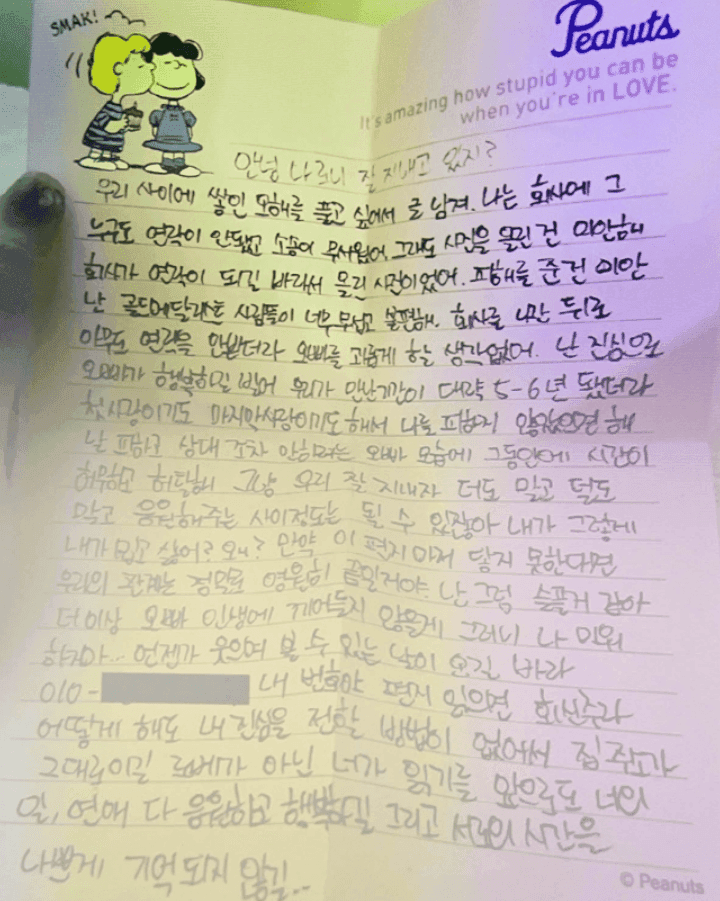 SMAK!
Peanuts
It's amazing how stupid you can be
when you're in LOVE.
안녕 나 잘 지내고 있지?
우리 사이에 쌓인 오해를 풀고 싶어서 글 남겨. 나는 회사에 그
누구도 연락이 안됐고 소송이 무서웠어. 그래도 사진을 올린 건 미안해
회사가 연락이 되길 바라서 올린 사진이었어. 피해를 준건 미안
난 골드메달리스트 사람들이 너무 무섭고 불편해. 회사를 나간 뒤로
아무도 연락을 안받더라 오빠를 괴롭게 할 생각없어. 난 진심으로
오빠가 행복하길 빌어 우리가 만난기간이 대략 5-6년 됐더라
첫사랑이기도 마지막사랑이기도 해서 나를 피하지 않았으면 해
날 피하고 상대조차 안하려는 오빠 모습에 그동안에 시간이
허무하고 허탈해 그냥 우리 잘 지내자 더도 말고 덜도
말고 응원해주는 사이정도는 될 수 있잖아 내가 그렇게
내가 밉고 싫어? 왜? 만약 이 편지마저 닿지 못한다면
우리의 관계는 정말로 영원히 끝일거야. 난 그럼 슬플거 같아
더이상 오빠 인생에 끼어들지 않을게 그러니 나 미워
하지마... 언젠가 웃으며 볼 수 있는 날이 오길 바라
010- 내 번호야 편지 읽으면 회신주라
어떻게 해도 내 진심을 전할 방법이 없어서 집주소가
그대로이길 로베가 아닌 너가 읽기를 앞으로도 너의
일, 연애 다 응원하고 행복하길 그리고 서로의 시간을
나쁘게 기억되지 않길...
© Peanuts